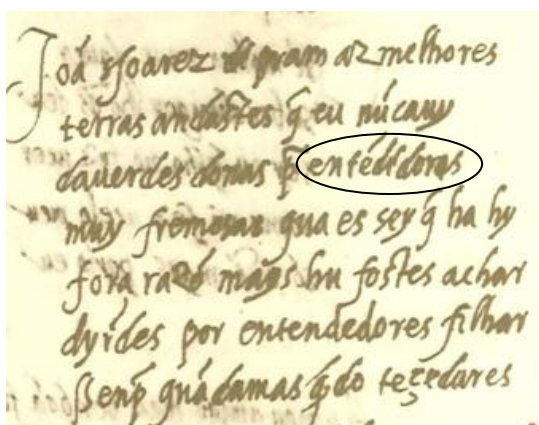 Joā ssoarez de pram as melhores
terras andastes q̃ eu nūca uy
dauerdes donas p̃ entēdidoras
muy fremosas qua es sey q̃ ha hy
fora razō mays hu fostes achar
dyrdes por entendedores filhar
senp̃ quādamas q̃do teçedores